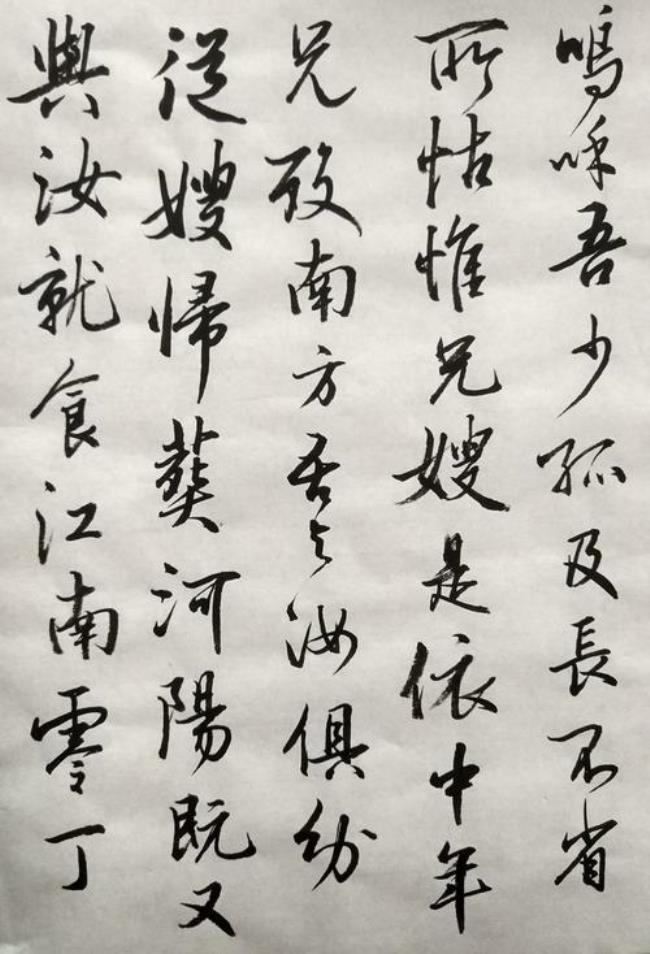 嗚呼吾少孤及長不省
所怙惟兄嫂是依中年
兄殁南方吾与汝俱幼
從嫂帰葬河陽既又
與汝就食江南零丁